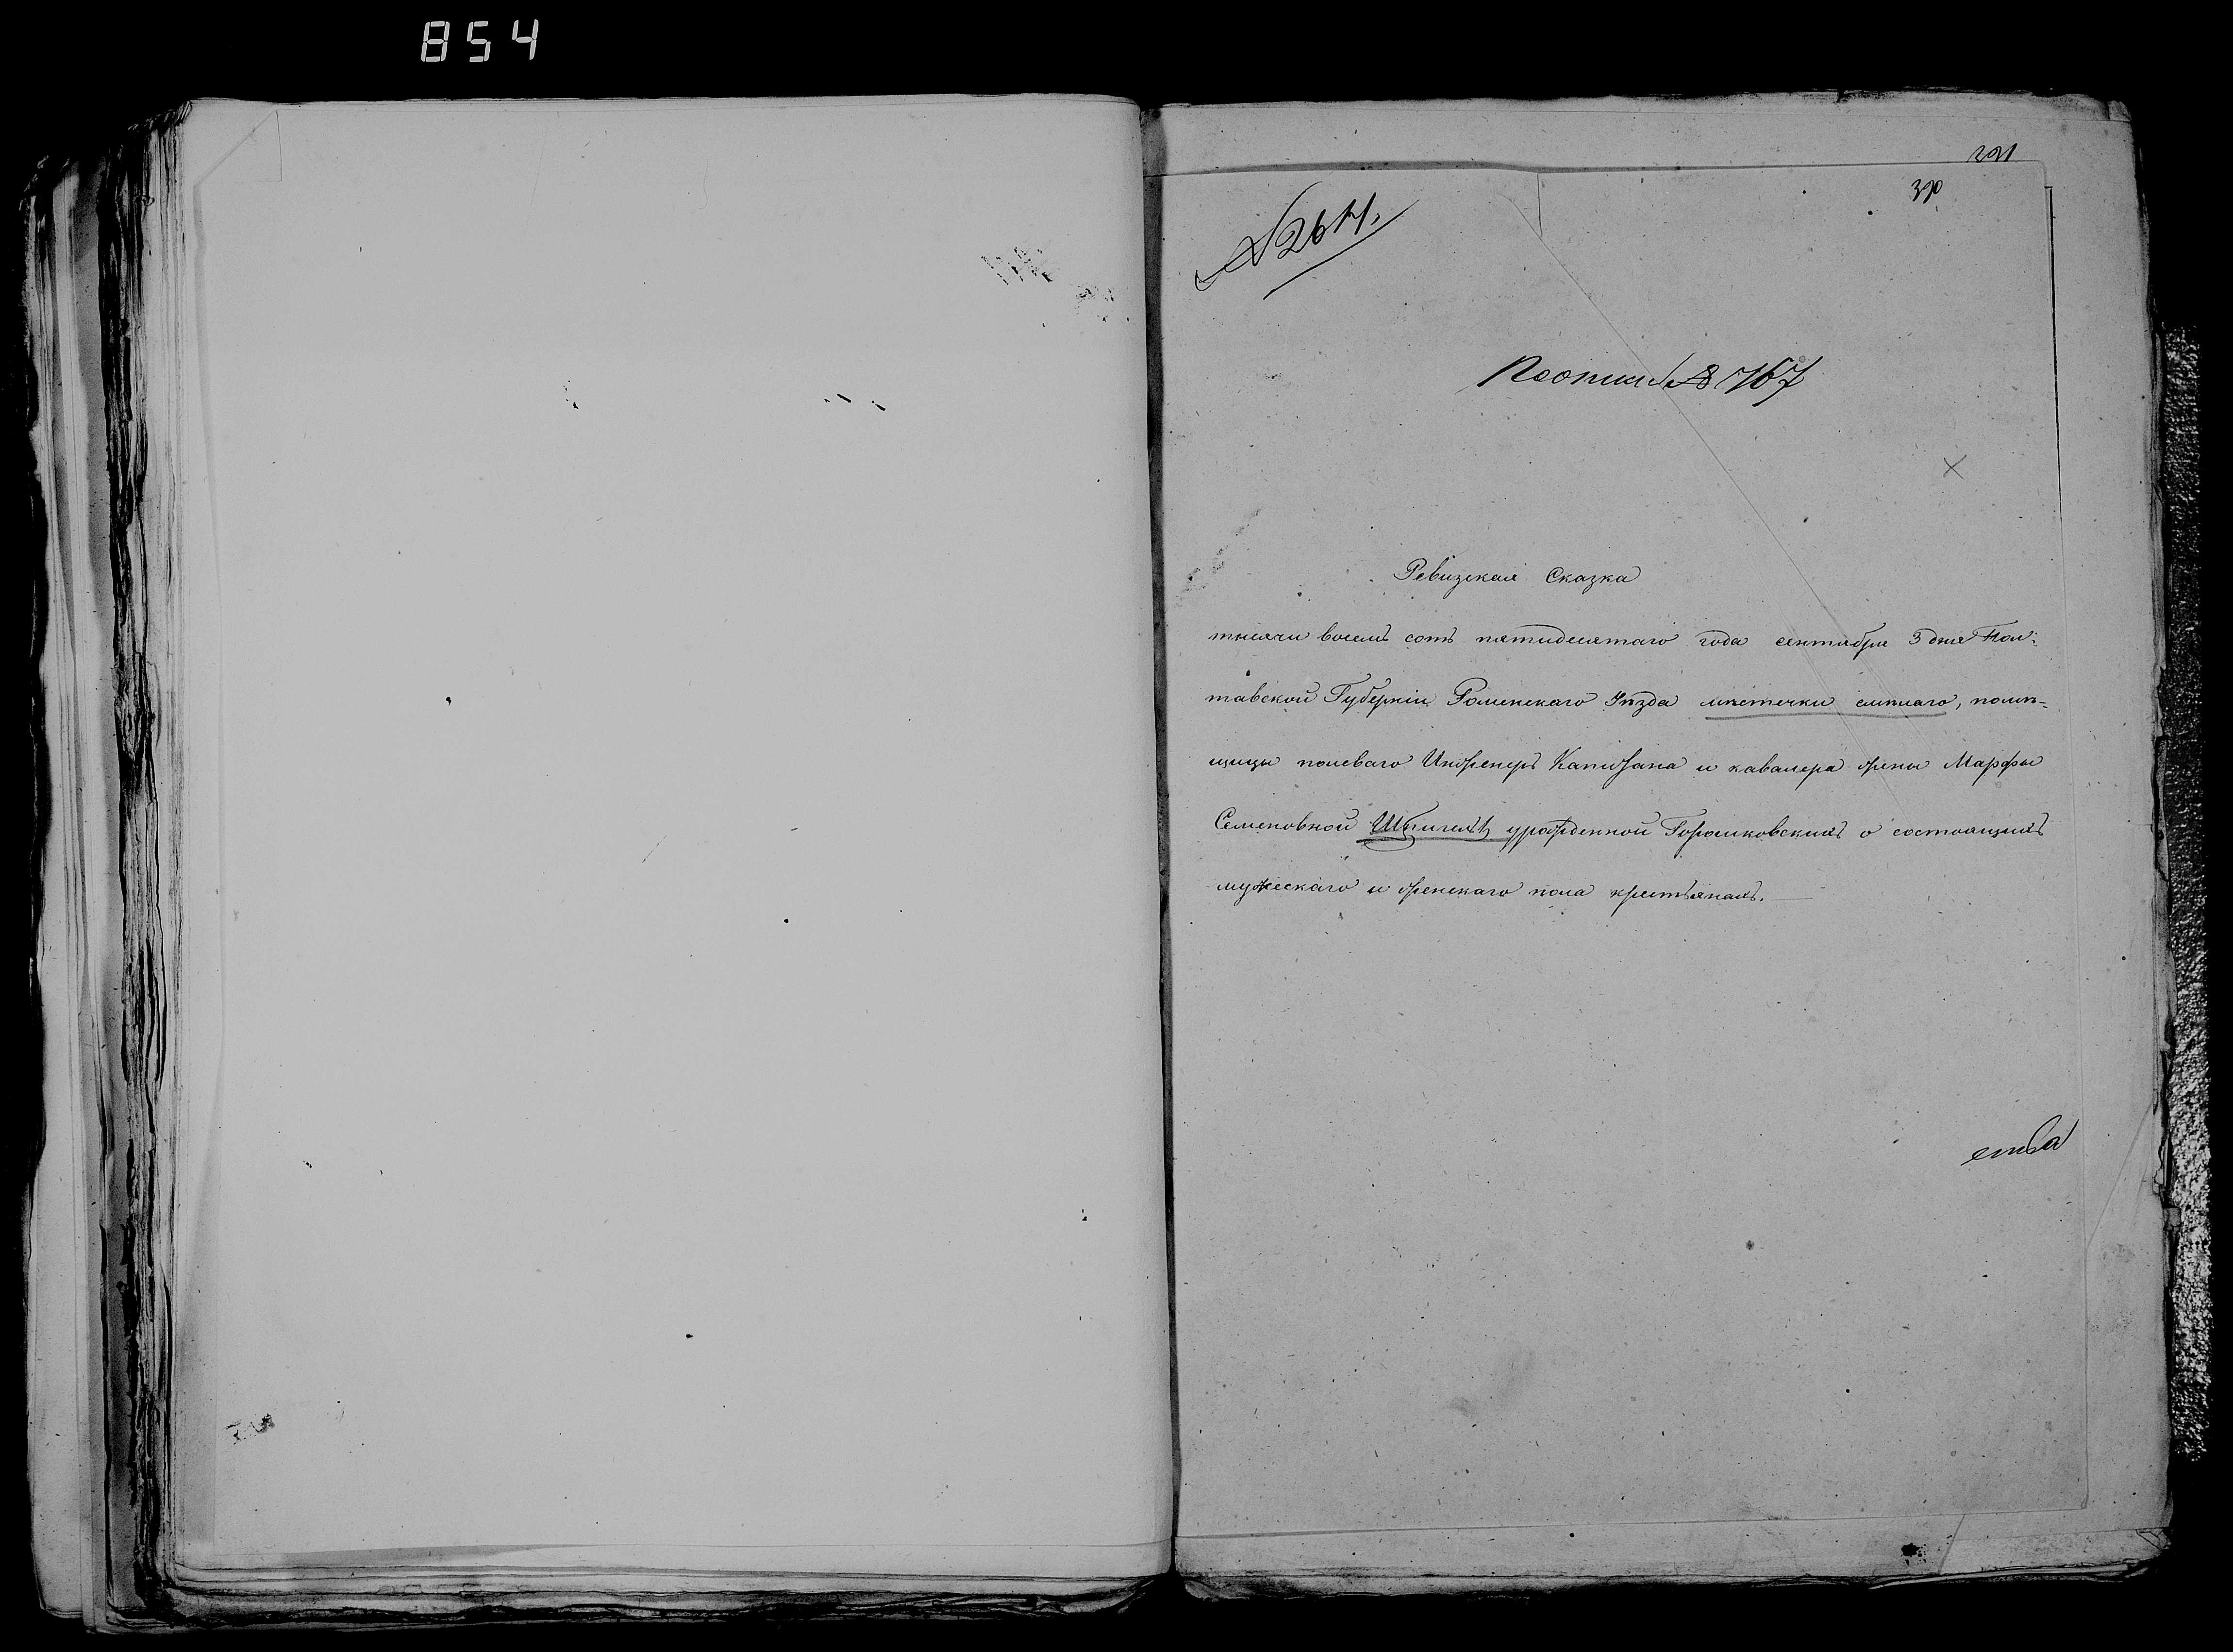 854
391
390
№ 2614.
По описи № 767
Ревизская Сказка
тысячи восемь сотъ пятидесятаго года сентября 3 дня Пол-
тавской Губерніи Роменскаго Уѣзда мѣстечки смѣлаго, помѣ-
щицы полеваго Инженеръ Капитана и кавалера жены Марфы
Семеновной урожденной Горошковскихъ о состоящихъ
мужескаго и женскаго пола крестьянахъ.